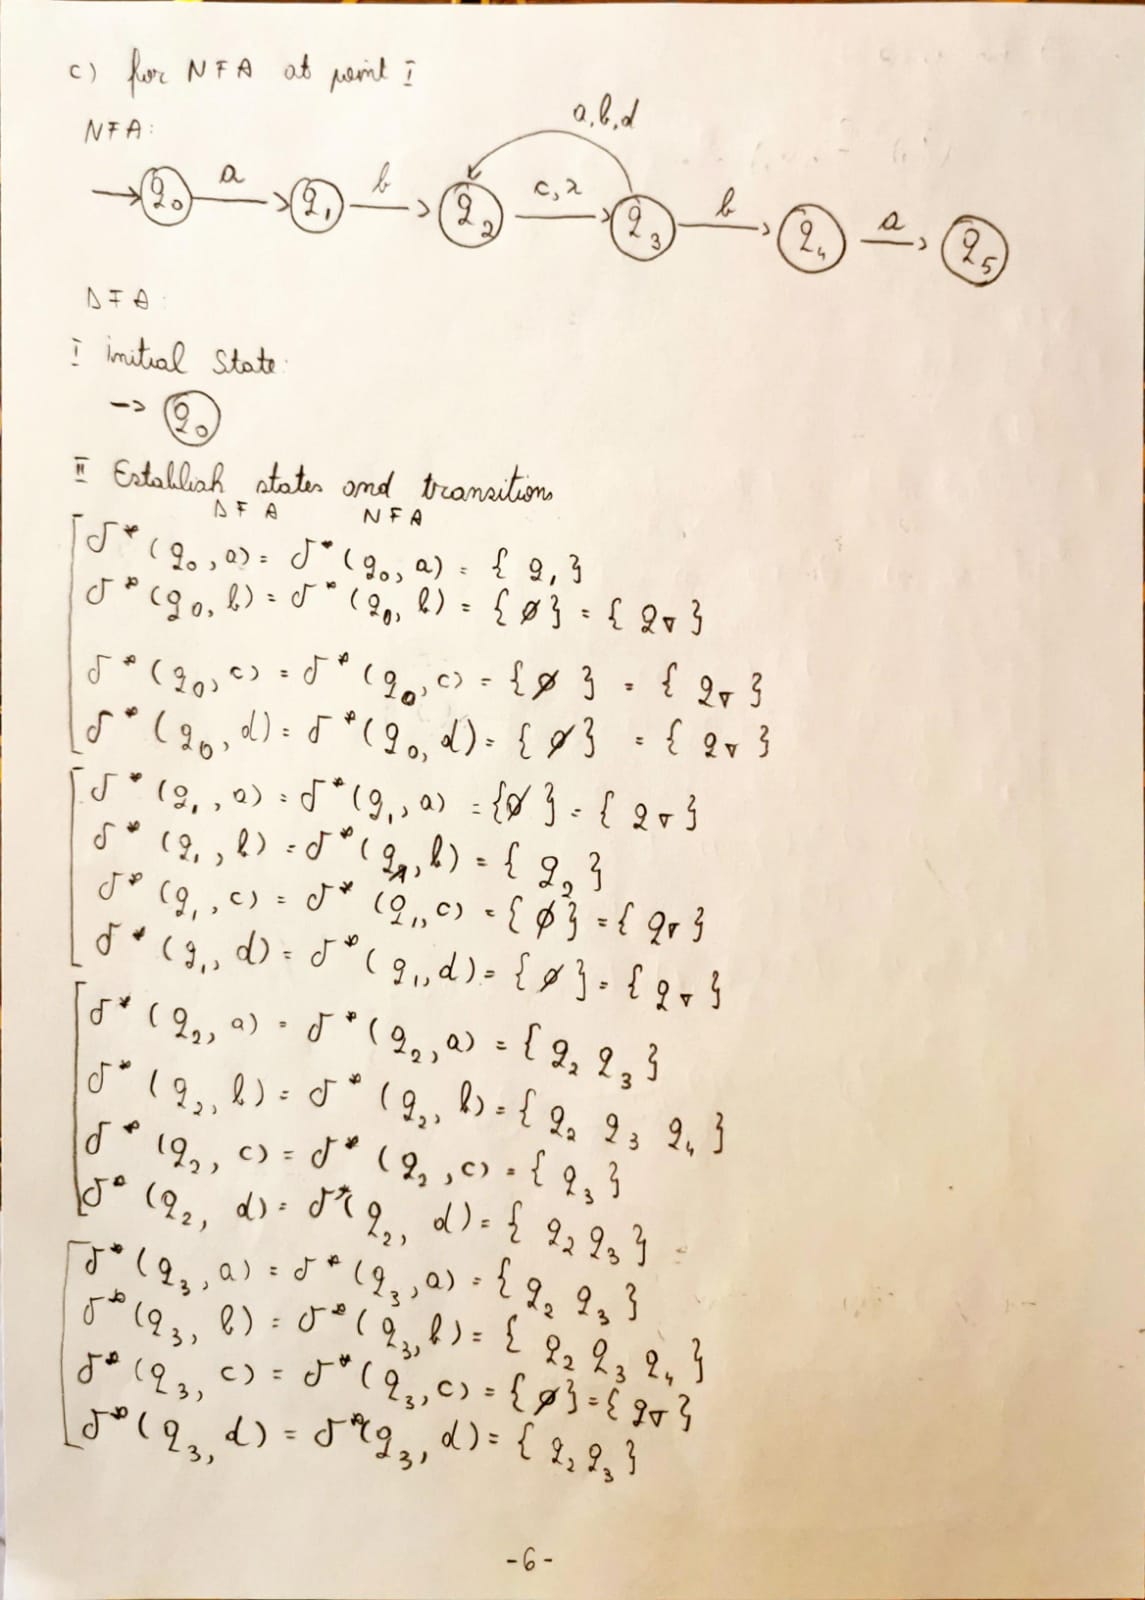 c) for NFA at point I
NFA:
a,b,d
→ q₀ a q₁ b q₂ c,λ q₃ b q₄ a q₅
DFA:
I initial State:
→ q₀
II Establish states and transitions
DFA NFA
δ* (q₀, a) = δ* (q₀, a) = { q₁ }
δ* (q₀, b) = δ* (q₀, b) = { ∅ } = { q▿ }
δ* (q₀, c) = δ* (q₀, c) = { ∅ } = { q▿ }
δ* (q₀, d) = δ* (q₀, d) = { ∅ } = { q▿ }
δ* (q₁, a) = δ* (q₁, a) = { ∅ } = { q▿ }
δ* (q₁, b) = δ* (q₁, b) = { q₂ }
δ* (q₁, c) = δ* (q₁, c) = { ∅ } = { q▿ }
δ* (q₁, d) = δ* (q₁, d) = { ∅ } = { q▿ }
δ* (q₂, a) = δ* (q₂, a) = { q₂ q₃ }
δ* (q₂, b) = δ* (q₂, b) = { q₂ q₃ q₄ }
δ* (q₂, c) = δ* (q₂, c) = { q₃ }
δ* (q₂, d) = δ* (q₂, d) = { q₂ q₃ }
δ* (q₃, a) = δ* (q₃, a) = { q₂ q₃ }
δ* (q₃, b) = δ* (q₃, b) = { q₂ q₃ q₄ }
δ* (q₃, c) = δ* (q₃, c) = { ∅ } = { q▿ }
δ* (q₃, d) = δ* (q₃, d) = { q₂ q₃ }
-6-